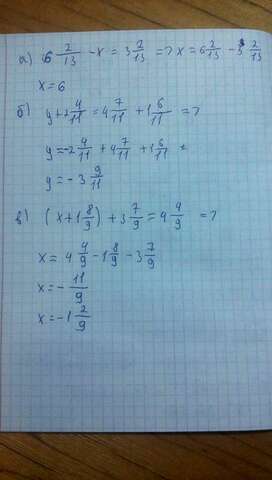 а) 6 2/13 - x = 3 2/13 => x = 6 2/13 - 3 2/13
x = 6
б) y + 2 4/11 = 4 7/11 + 1 6/11 =>
y = -2 4/11 + 4 7/11 + 1 6/11
y = - 3 9/11
в) (x + 1 8/9) + 3 7/9 = 4 4/9 =>
x = 4 4/9 - 1 8/9 - 3 7/9
x = - 11/9
x = -1 2/9